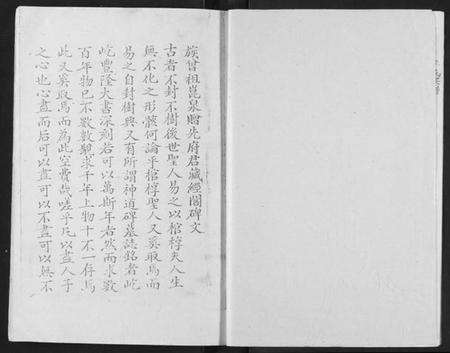 族曾祖崑泉贈先府君藏經閣碑文
古者不封不樹後世聖人易之以棺椁夫人生
無不化之形骸何論乎棺椁聖人又奚取焉而
易之自封樹興又有所謂神道碑墓誌銘者屹
屹豐隆大書深刻若可以萬斯年者然而求數
百年物已不數數覯求千年上物十不一存焉
此又奚取焉而為此空費哉嗟乎凡以盡人子
之心也心盡而后可以盡可以不盡可以無不